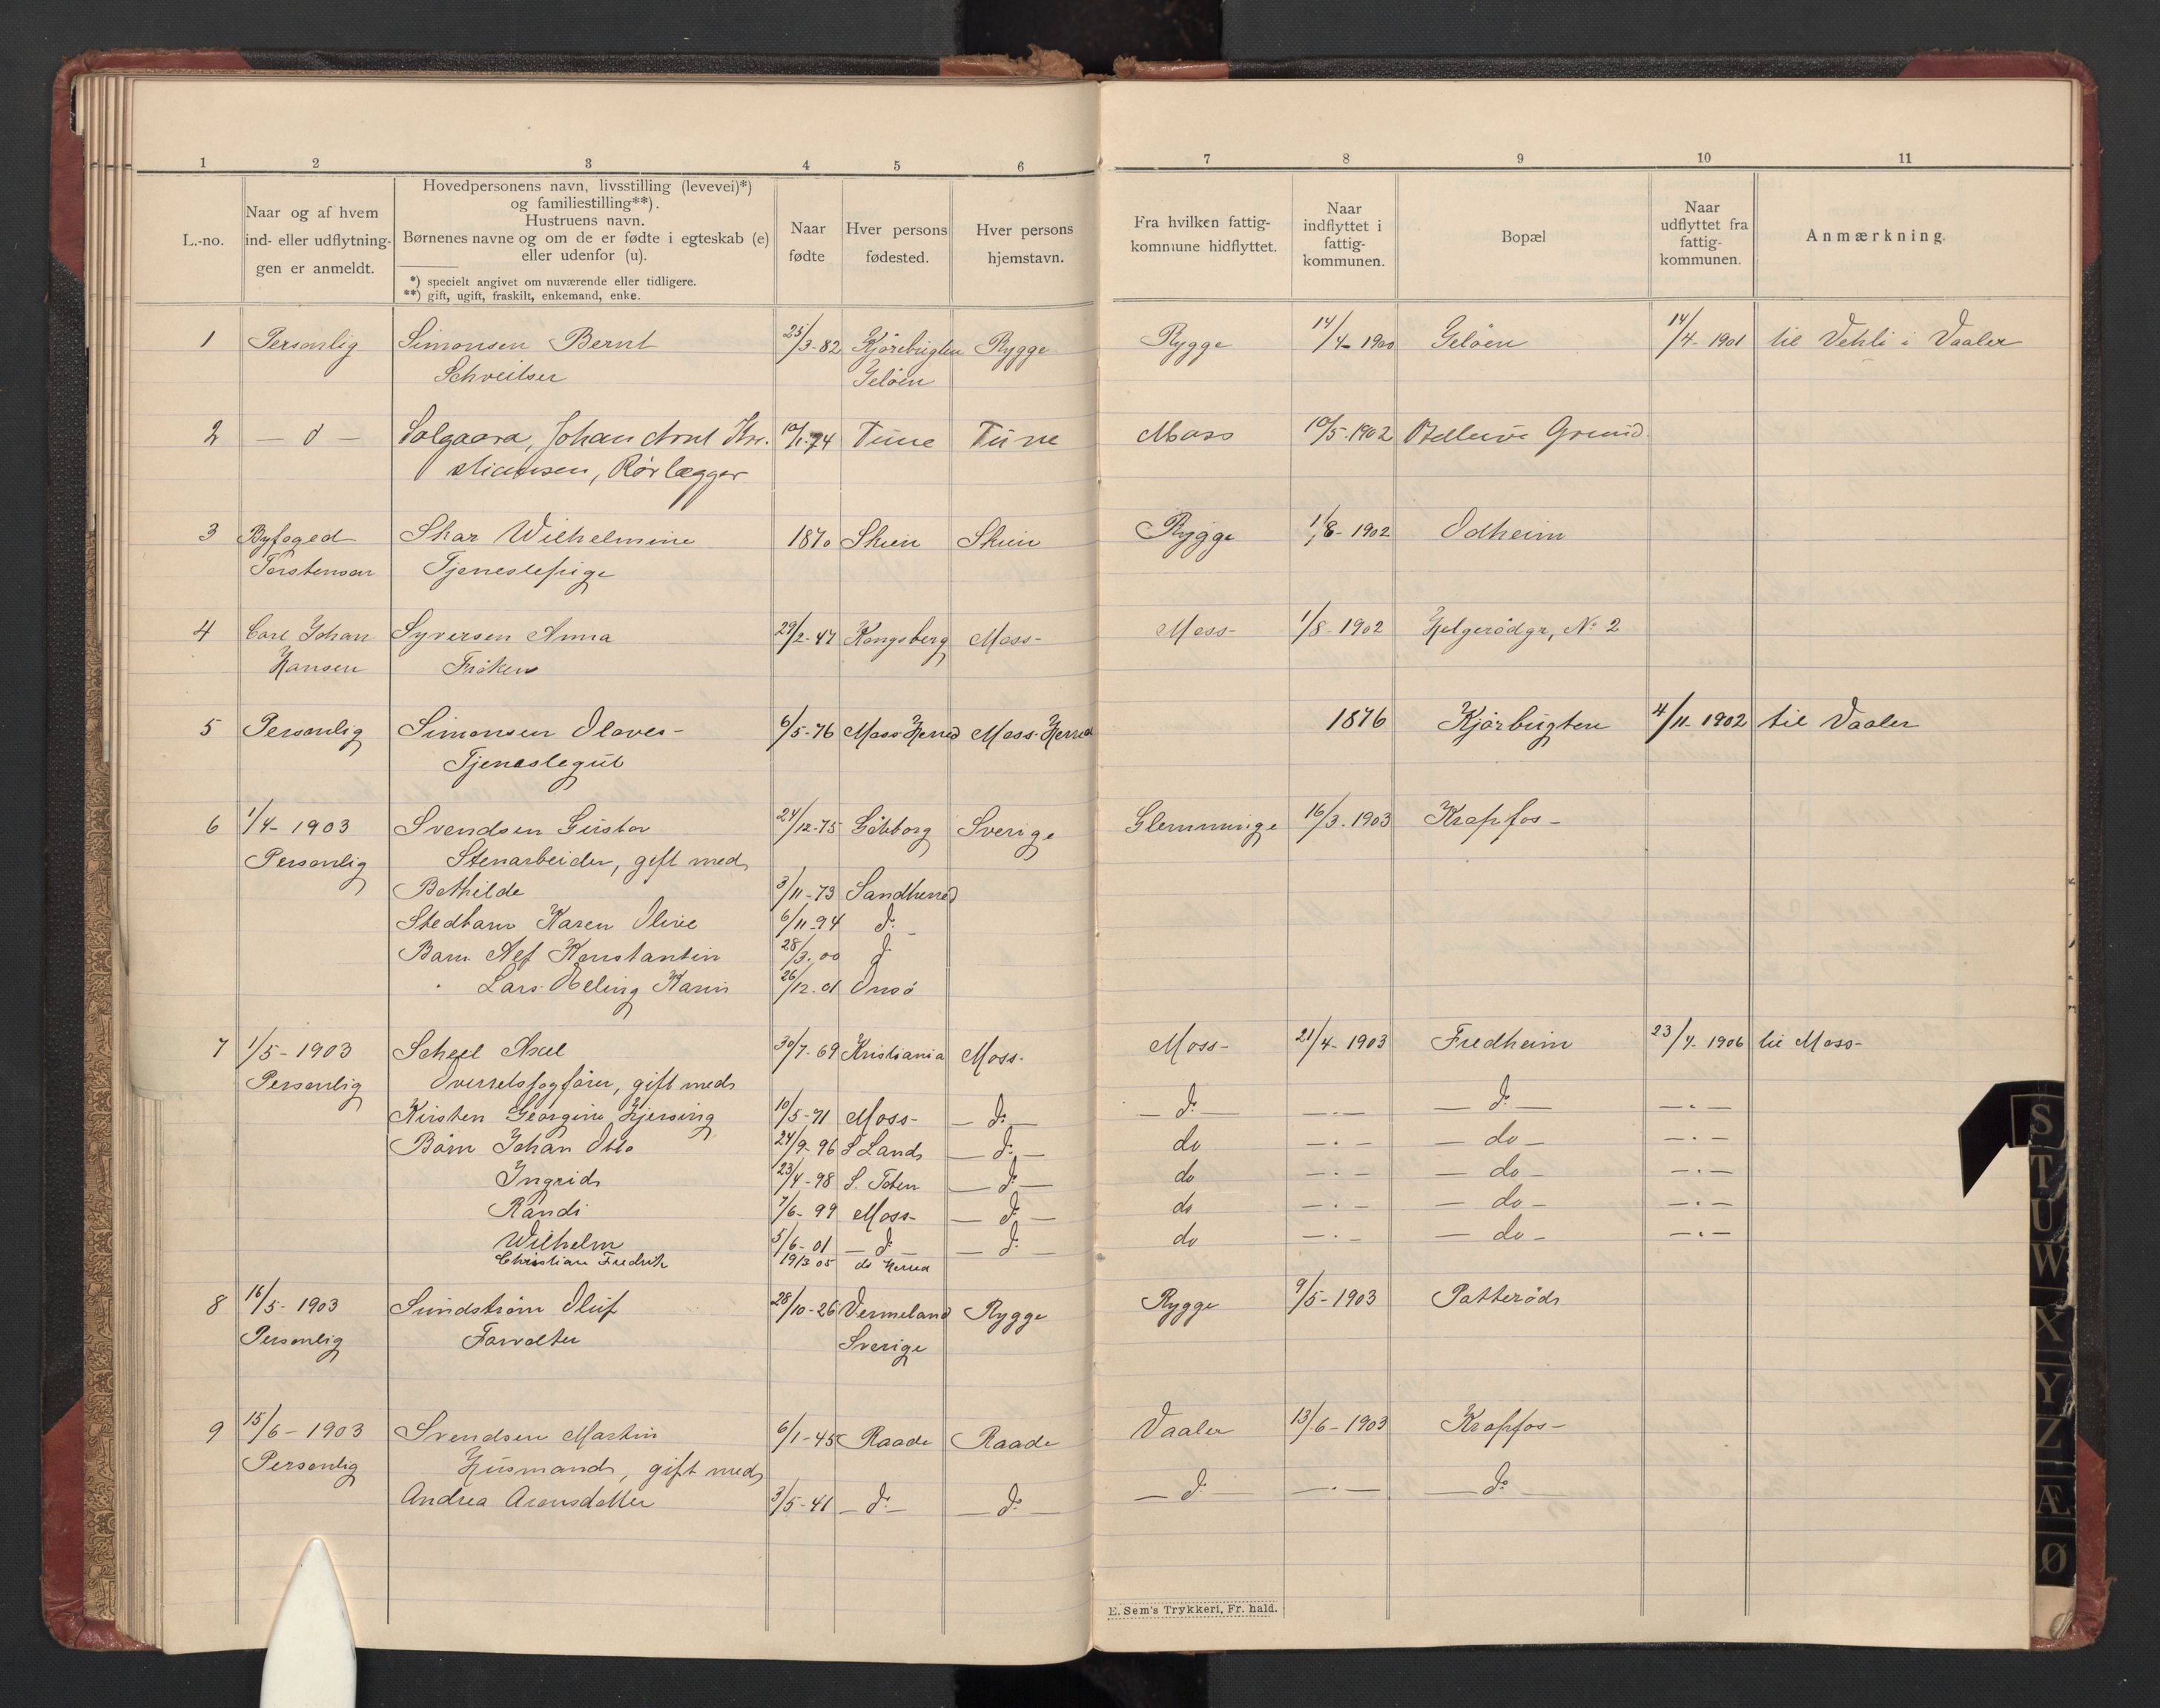 1 2 3 4 5 6 7 8 9 10 11
L.-no.
Naar og af hvem
ind- eller udflytnin-
gen er anmeldt.
Hovedpersonens navn, livsstilling (levevei)*)
og familiestilling**).
Hustruens navn.
Børnenes navne og om de er fødte i egteskab (e)
eller udenfor (u).
*) specielt angivet om nuværende eller tidligere.
**) gift, ugift, fraskilt, enkemand, enke.
Naar
fødte
Hver persons
fødested.
Hver persons
hjemstavn.
Fra hvilken fattig-
kommune hidflyttet.
Naar
indflyttet i
fattig-
kommunen.
Bopæl
Naar
udflyttet fra
fattig-
kommunen.
Anmærkning.
1 Personlig Simonsen Bernt 25/3-82 Kjørebugten Rygge Rygge 14/4-1900 Geløen 14/4-1901 til Vehli i Vaaler
Schveitser Geløen
2 — d — Solgaara, Johan Arnt Kri- 12/1-74 Tune Tune Moss 10/5-1902 Bellevue Grund
stiansen, Rørlægger
3 Byfoged Skar Wilhelmine 1870 Skien Skien Rygge 1/8-1902 Odheim
Torstensen Tjenestepige
4 Carl Johan Syversen Anna 29/2-47 Kongsberg Moss- Moss- 1/8-1902 Helgerødgr, No 2
Hansen Frøken
5 Personlig Simonsen Olaves- 6/5-76 Moss Herred Moss-Herred 1876 Kjørbugten 4/11-1902 til Vaaler
Tjenestegut
6 1/4-1903 Svendsen Gustav 24/12-75 Gøteborg Sverige Glemminge 16/3-1903 Krapfos-
Personlig Stenarbeider, gift med
Bothilde 3/11-73 Sandherred
Stedbarn Karen Oline 6/11-94 do
Barn Alf Konstantin 28/3-00 do
" Lars Karin 26/12-01 Onsø
7 1/5-1903 Scheel Axel 30/7-69 Kristiania Moss- Moss- 21/4-1903 Fredheim 23/4-1906 til Moss-
Personlig Overretssagfører, gift med
Kirsten Georgine Hjersing 10/5-71 Moss- — do — — do — — . — — do — — . —
Børn Johan Otto 24/9-96 S Land — do — do — . — — do — — . —
Ingrid 23/4-98 S. Toten — do — do — . — — do — — . —
Randi 7/6-99 Moss- — do — do — . — — do — — . —
Wilhelm 5/6-01 — do — — do — do — . — — do — — . —
Christian Fredrik 19/3 05 do Herred
8 16/5-1903 Sundstrøm Oluf 28/10-26 Vermeland Rygge Rygge 9/5-1903 Patterød
Personlig Forvalter Sverige
9 15/6-1903 Svendsen Martin 6/1-45 Raade Raade Vaaler 13/6-1903 Krapfos-
Personlig Husmand, gift med
Andrea Aronsdatter 3/5-41 — do — — do — — do — — . — — do —
E. Sem's Trykkeri, Fr. hald.
S
T
U
W
X
Y
Z
Æ
Ø